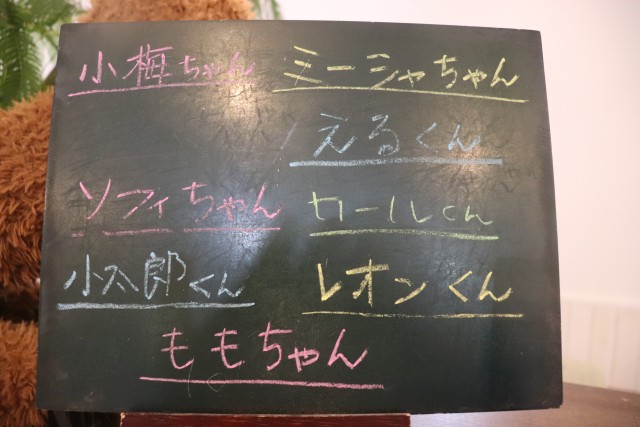 小梅ちゃん ミーシャちゃん
えるくん
ソフィちゃん カールくん
小太郎くん レオンくん
ももちゃん